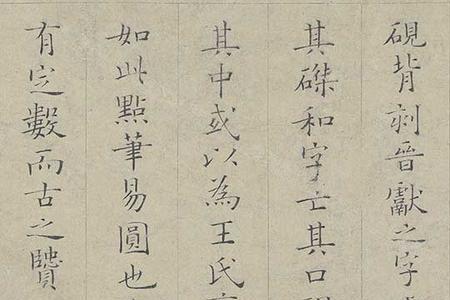 硯背刻晉獻之字
其磔和字亡其口
其中或以為王氏
如此點筆易圓也
有定數而古之